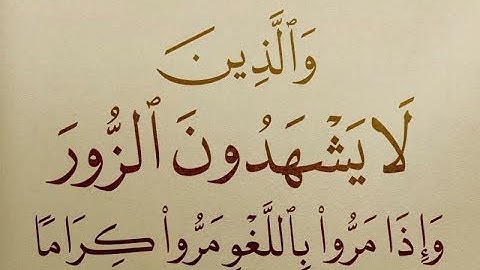 وَٱلَّذِينَ
لَا يَشْهَدُونَ ٱلزُّورَ
وَإِذَا مَرُّوا۟ بِٱللَّغْوِ مَرُّوا۟ كِرَامًا